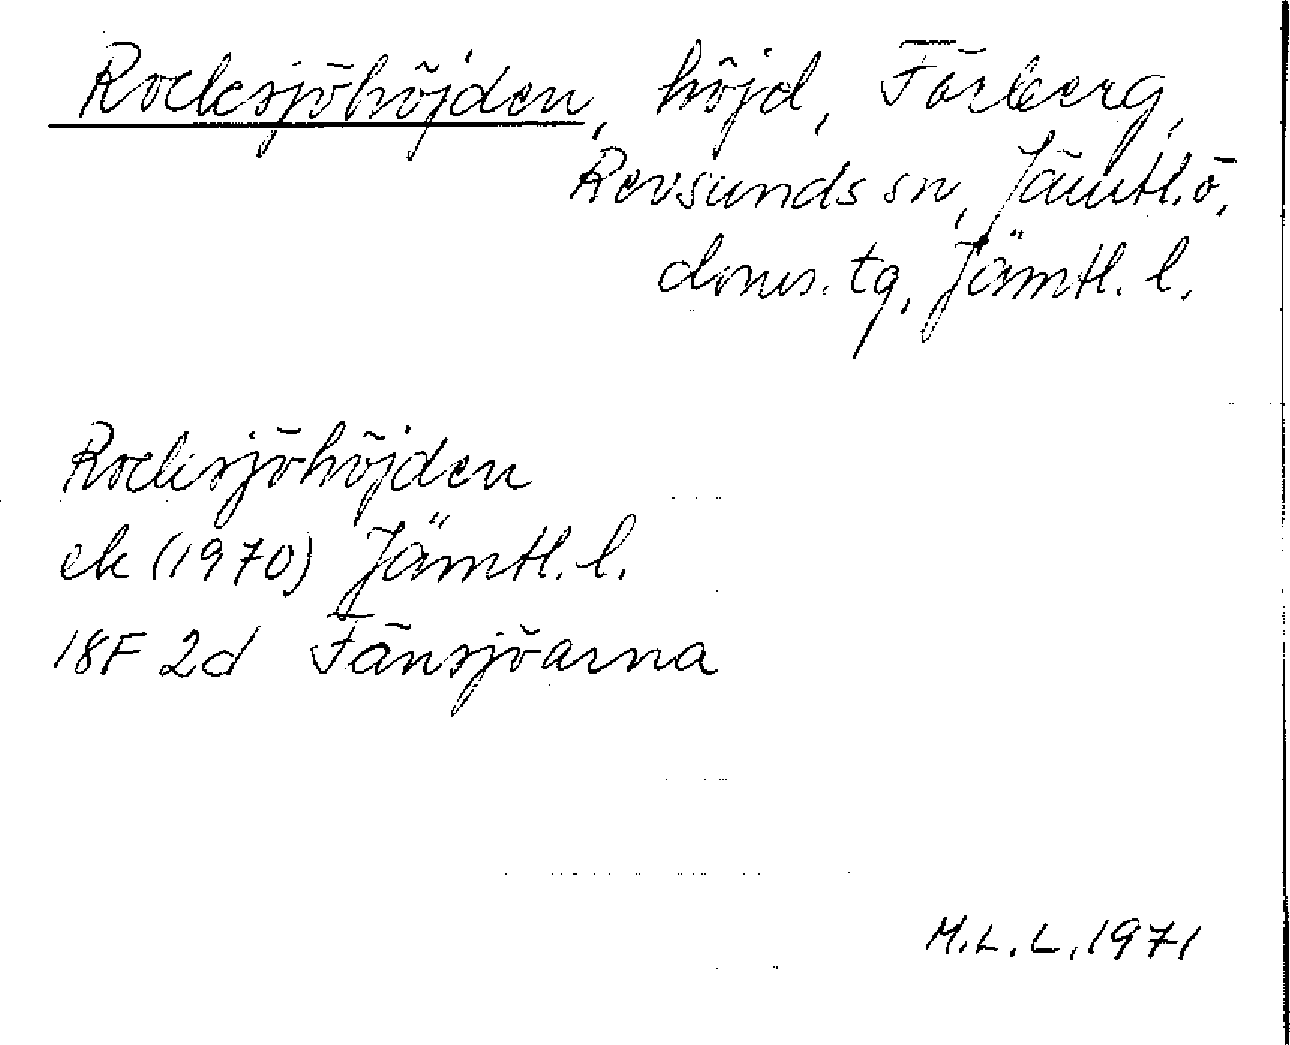 Rocksjöhöjden, höjd, Fösberg,
Revsunds sn, Jämtl.ö.
doms. tg, Jämtl. l.
Rocksjöhöjden
ek (1970) Jämtl. l.
18F 2d Fånsjöarna
M.L.L. 1971